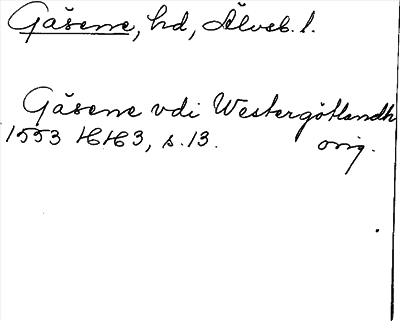 Gäsene, hd, Älvsb. l.
Gäsene vdi Westergötlandh
1553 HH 3, s. 13. orig.